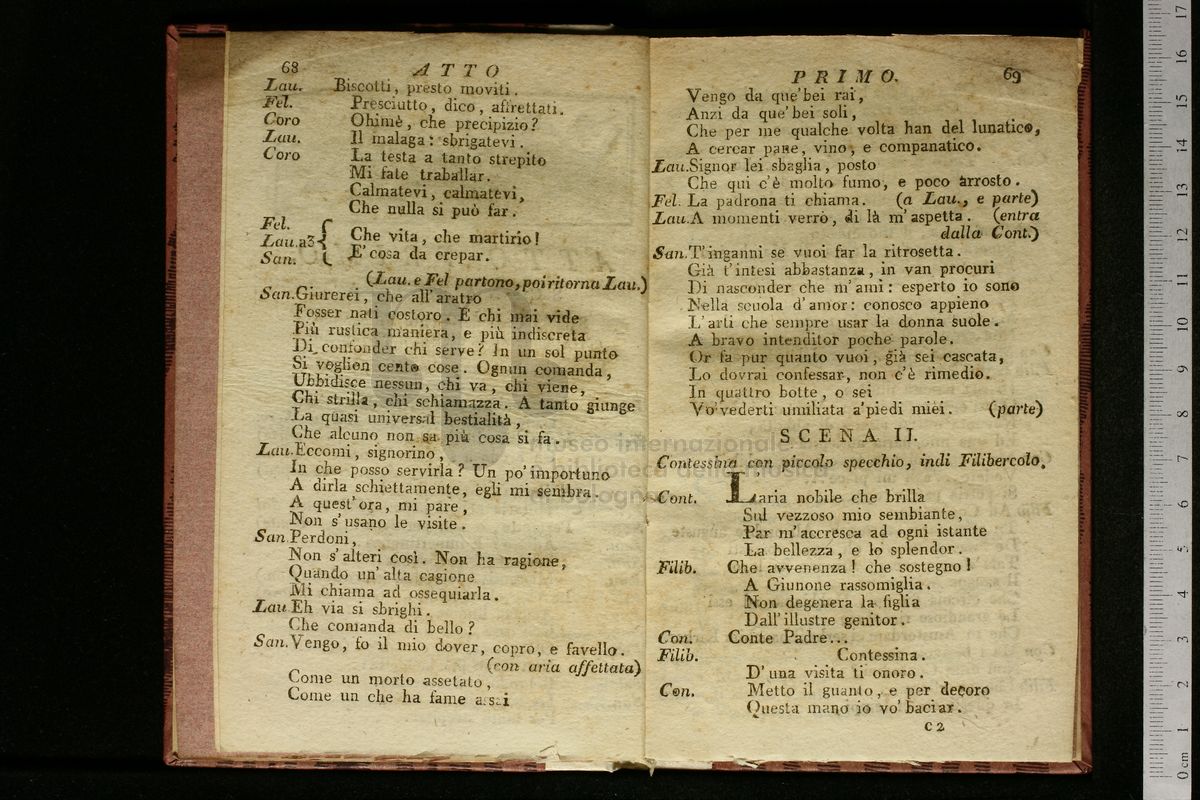 68
ATTO
Lau. Biscotti, presto moviti.
Fel. Presciutto, dico, affrettati.
Coro Ohimè, che precipizio?
Lau. Il malaga: sbrigatevi.
Coro La testa a tanto strepito
Mi fate traballar.
Calmatevi, calmatevi,
Che nulla si può far.
Fel.
Lau.a3{ Che vita, che martirio!
San. E' cosa da crepar.
(Lau. e Fel partono, poi ritorna Lau.)
San.Giurerei, che all'aratro
Fosser nati costoro. E chi mai vide
Più rustica maniera, e più indiscreta
Di confonder chi serve? In un sol punto
Si voglion cento cose. Ognun comanda,
Ubbidisce nessun, chi va, chi viene,
Chi strilla, chi schiamazza. A tanto giunge
La quasi universal bestialità,
Che alcuno non sa più cosa si fa.
Lau.Eccomi, signorino,
In che posso servirla? Un po'importuno
A dirla schiettamente, egli mi sembra.
A quest'ora, mi pare,
Non s'usano le visite.
San.Perdoni,
Non s'alteri così. Non ha ragione,
Quando un'alta cagione
Mi chiama ad ossequiarla.
Lau Eh via si sbrighi.
Che comanda di bello?
San.Vengo, fo il mio dover, copro, e favello.
(con aria affettata)
Come un morto assetato,
Come un che ha fame assai
PRIMO.
69
Vengo da que'bei rai,
Anzi da que'bei soli,
Che per me qualche volta han del lunatico,
A cercar pane, vino, e companatico.
Lau.Signor lei sbaglia, posto
Che qui c'è molto fumo, e poco arrosto.
Fel. La padrona ti chiama. (a Lau., e parte)
Lau.A momenti verrò, di là m'aspetta. (entra
dalla Cont.)
San.T'inganni se vuoi far la ritrosetta.
Già t'intesi abbastanza, in van procuri
Di nasconder che m'ami: esperto io sono
Nella scuola d'amor: conosco appieno
L'arti che sempre usar la donna suole.
A bravo intenditor poche parole.
Or fa pur quanto vuoi, già sei cascata,
Lo dovrai confessar, non c'è rimedio.
In quattro botte, o sei
Vo'vederti umiliata a'piedi miei. (parte)
SCENA II.
Contessina con piccolo specchio, indi Filibercolo.
Cont. Laria nobile che brilla
Sul vezzoso mio sembiante,
Par m'accresca ad ogni istante
La bellezza, e lo splendor.
Filib. Che avvenenza! che sostegno!
A Giunone rassomiglia.
Non degenera la figlia
Dall'illustre genitor.
Con. Conte Padre...
Filib. Contessina.
D'una visita ti onoro.
Con. Metto il guanto, e per decoro
Questa mano io vo'baciar.
C 2
Museo internazionale
e biblioteca della musica
di bologna